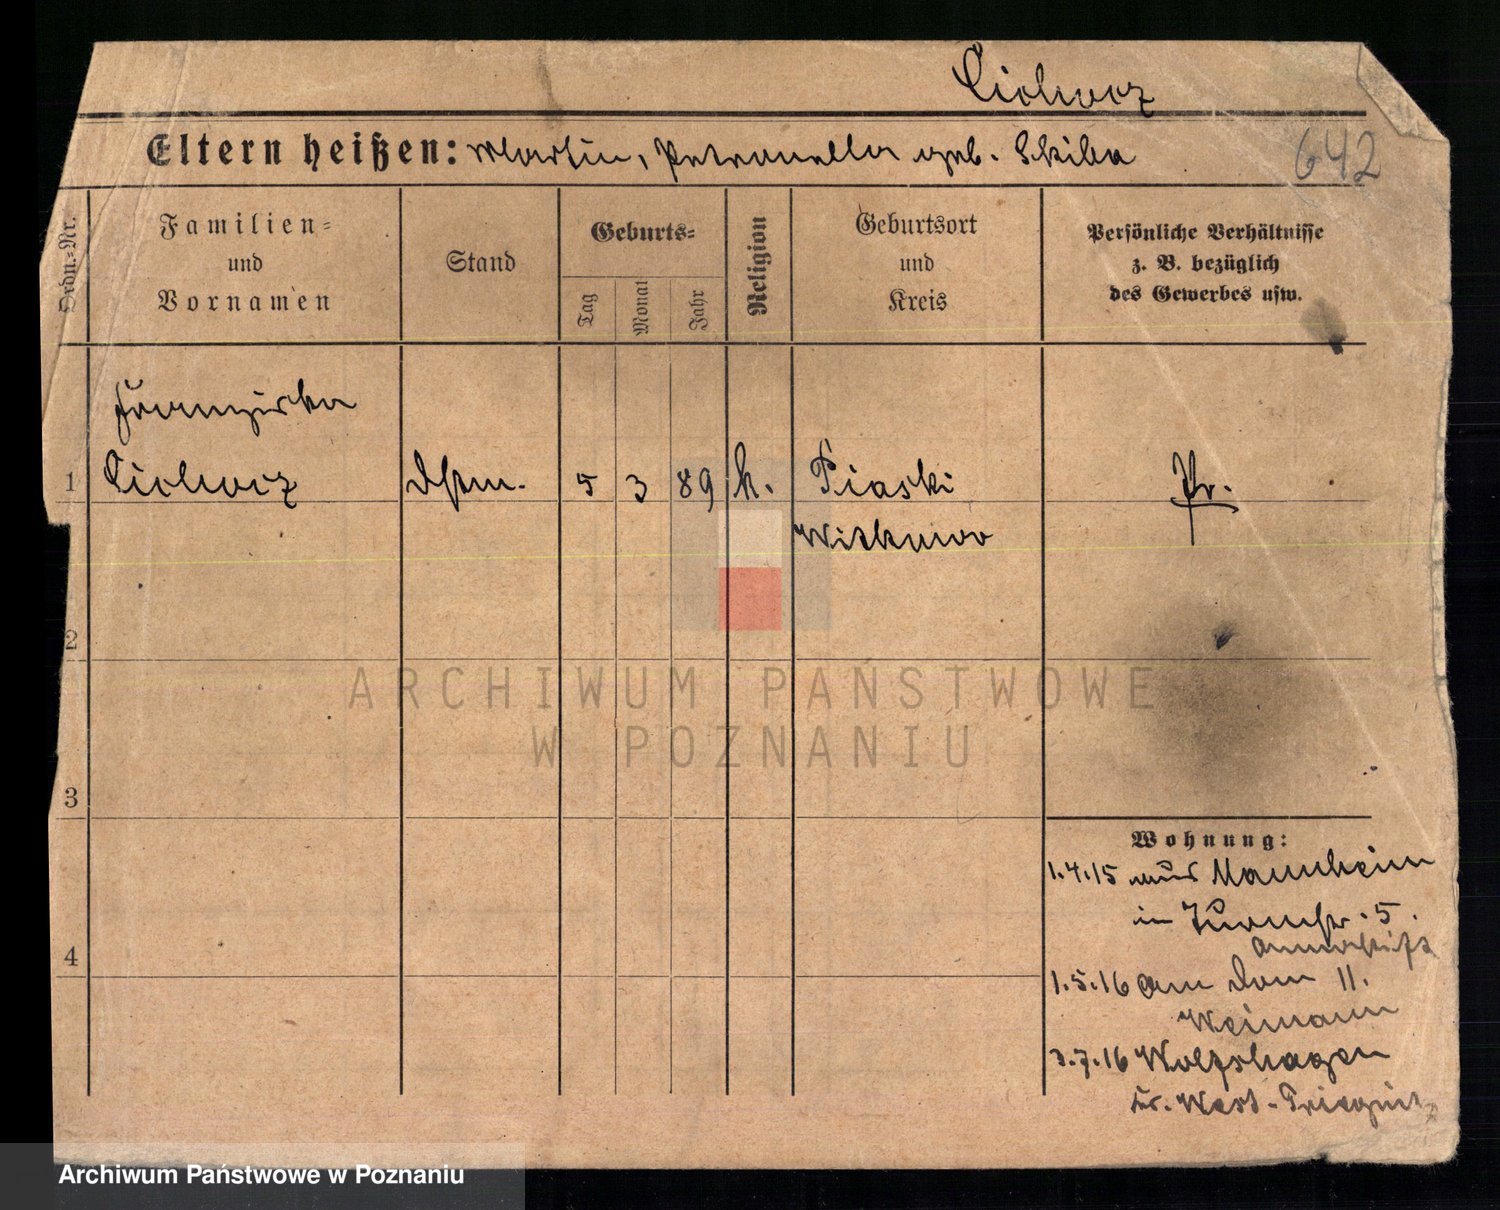 Cichocz
Eltern heißen: Martin, Petronella geb. Skiba
642
Ordn.-Nr.
Familien-
und
Vornamen
Stand
Geburts-
Tag
Monat
Jahr
Religion
Geburtsort
und
Kreis
Persönliche Verhältnisse
z. B. bezüglich
des Gewerbes usw.
Franziska
1 Dstm. 5 3 89 k. Piaski Pr.
Witkowo
2
3
4
Wohnung:
1.4.15 aus Mannheim
in Turmstr. 5.
1.5.16 Am Dom 11.
Weimann
3.7.16 Wolfshagen
Kr. West-Prignitz
ARCHIWUM PAŃSTWOWE
W POZNANIU
Archiwum Państwowe w Poznaniu